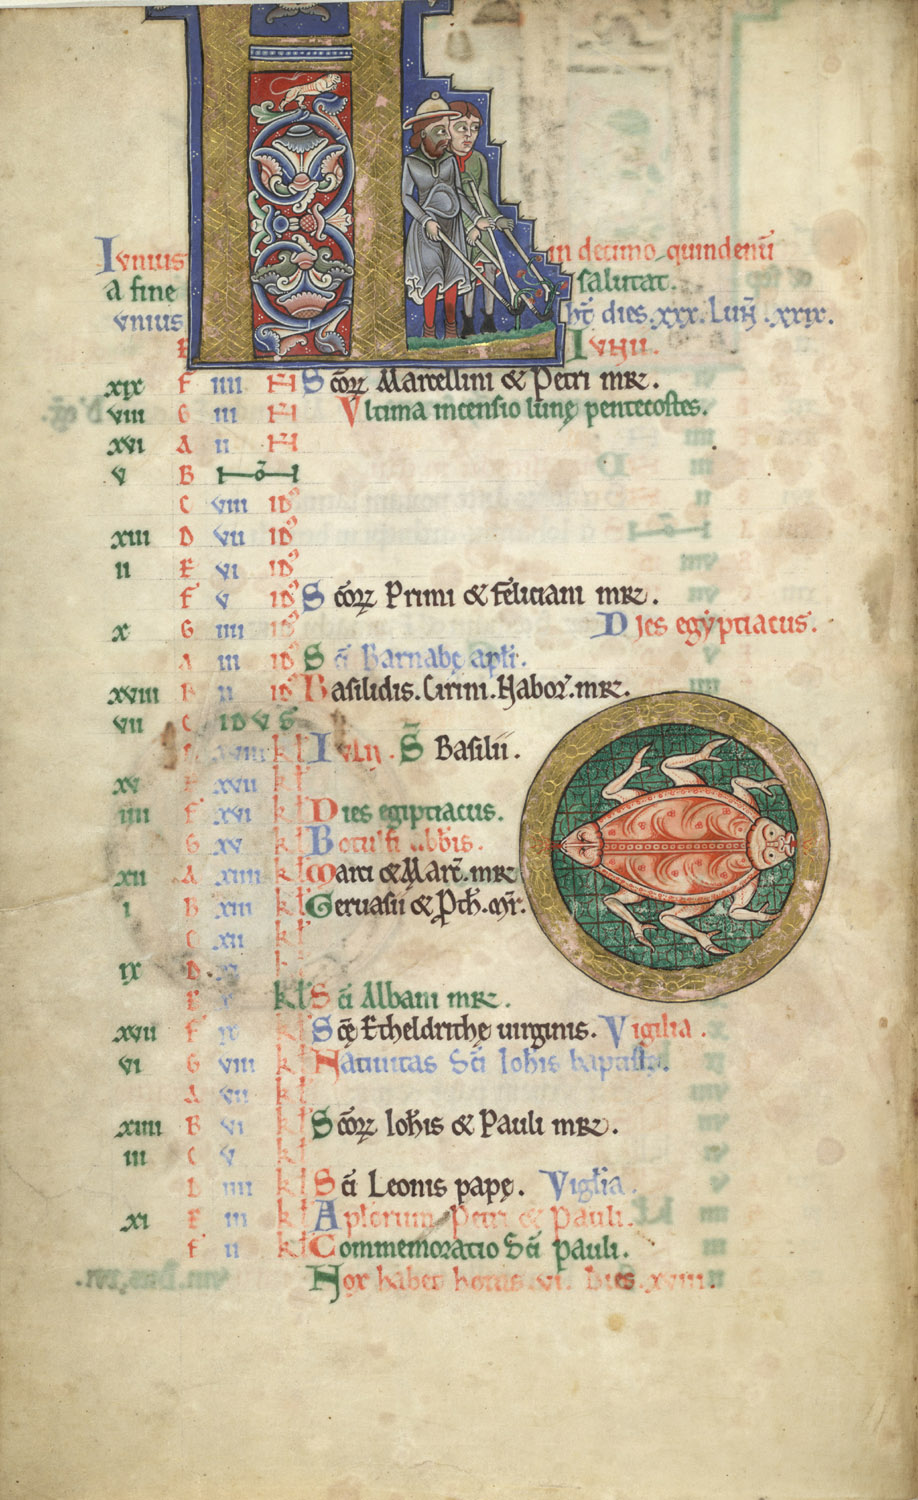 Iunius in decimo quindenu̅
a fine salutat.
vnius ht̅ dies .xxx. Lun̅ .xxix.
E Iunii.
xix F iiii N Sc̅oꝝ Marcellini & Petri mr̅.
viii G iii N Vltima incensio lunę pentecostes.
xvi A ii N
v B No̅N
C viii id⁹
xiii D vii id⁹
ii E vi id⁹
F v id⁹ Sc̅oꝝ Primi & feliciani mr̅.
x G iiii id⁹ Dies egyptiacus.
A iii id⁹ Sc̅i Barnabę apl̅i.
xviii B ii id⁹ Basilidis. Cirini. Nabor̅. mr̅.
vii C idus
xviii kl̅ Iulii. S̅ Basilii.
xv xvii kl̅
iiii F xvi kl̅ Dies egiptiacus.
G xv kl̅ Botulfi abb̅is.
xii A xiiii kl̅ Marci & Marc̅. mr̅
i B xiii kl̅ Geruasii & Pth̅. mr̅.
C xii kl̅
ix D kl̅
kl̅ Sc̅i Albani mr̅.
xvii F kl̅ Sc̅ę Etheldrithę uirginis. Vigilia.
vi G viii kl̅ Natiuitas Sc̅i Ioh̅is baptistę.
A vii kl̅
xiiii B vi kl̅ Sc̅oꝝ Ioh̅is & Pauli mr̅.
iii C v kl̅
D iiii kl̅ Sc̅i Leonis papę. Vigl̅ia.
xi E iii kl̅ Apl̅orum Petri & Pauli.
F ii kl̅ Commemoratio Sc̅i pauli.
Nox habet horas .vi. Dies .xviii.